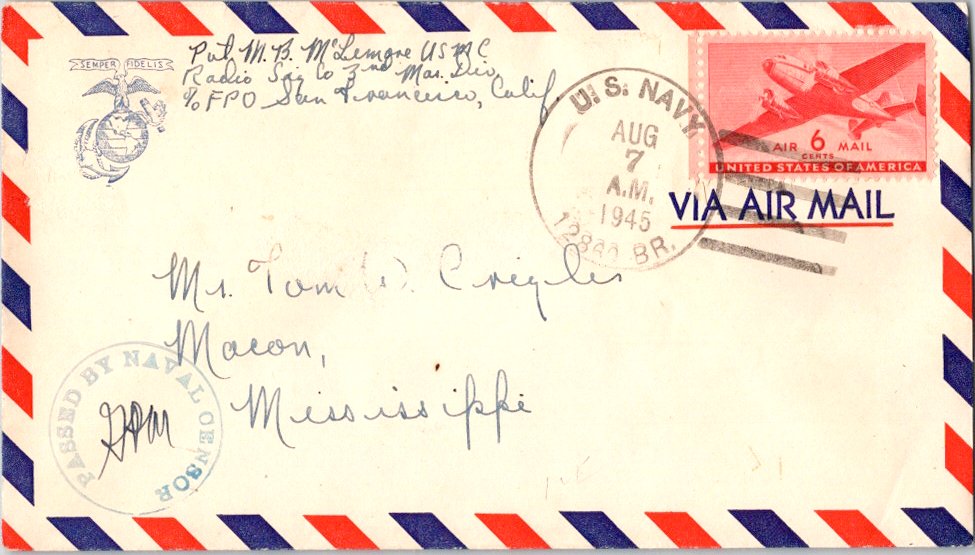 SEMPER FIDELIS
Pvt. M. B. McLemore USMC
Radio Sig Co 3rd Mar. Div.
℅ FPO San Francisco, Calif.
U.S. NAVY
AUG
7
A.M.
1945
BR.
AIR 6 MAIL
CENTS
UNITED STATES OF AMERICA
VIA AIR MAIL
Mr. Tom D. Crigler
Macon,
Mississippi
PASSED BY NAVAL CENSOR